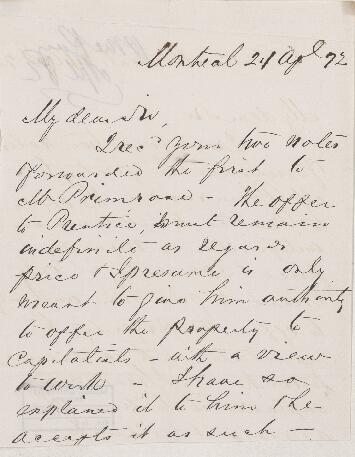 Montreal 24 Apl 72
My dear Sir,
I recd your two notes
forwarded the first to
Mr Primrose - the offer
to Prentice, must remain
indefinite as regards
price & I presume is only
meant to give him authority
to offer the property to
Capitalists - with a view
to work - I have so
explained it to him & he
accepts it as such -